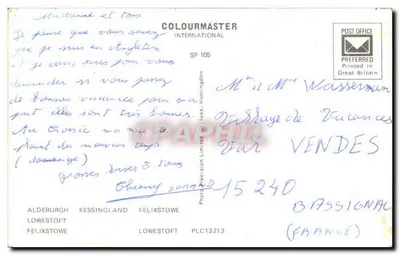 Madame et tous
COLOURMASTER
INTERNATIONAL
SF 105
POST OFFICE
PREFERRED
Printed in
Great Britain
Je pense que vous savez
que je suis en Angleterre
et je vous écris pour vous
demander si vous passez
de bonnes vacances pour ma
part elles sont très bonnes.
Au
(dommage)
grosses bises à tous
Thierry
Mm et Mme Wasserman
Village de Vacances
Var VENDES
15240
BASSIGNAC
(FRANCE)
Photo Precision Limited, St. Ives, Huntingdon
ALDEBURGH KESSINGLAND FELIXSTOWE
LOWESTOFT
FELIXSTOWE LOWESTOFT PLC13213